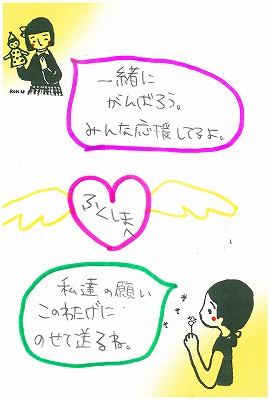 一緒に
がんばろう。
みんな応援してるよ。
ふくしまへ
私達の願い
このわたげに
のせて送るね。